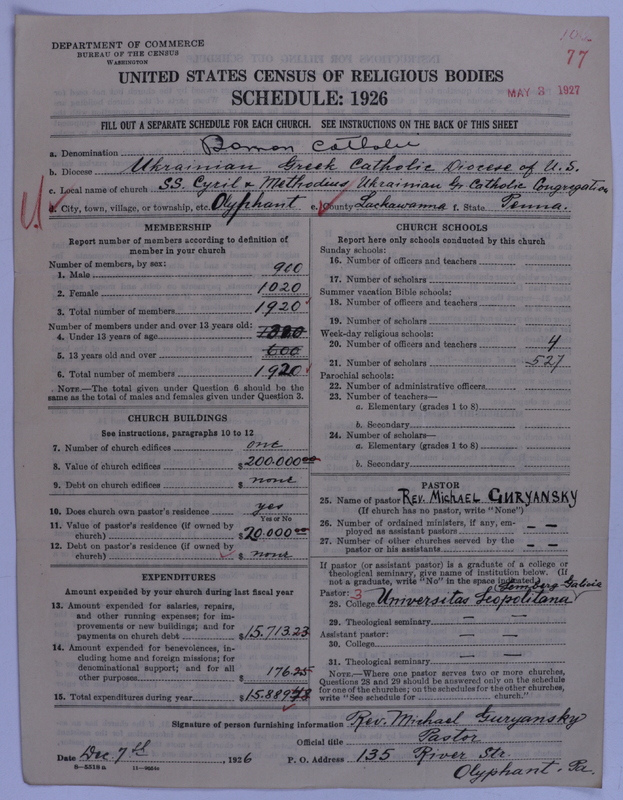 DEPARTMENT OF COMMERCE
BUREAU OF THE CENSUS
WASHINGTON
100
77
UNITED STATES CENSUS OF RELIGIOUS BODIES
SCHEDULE: 1926
MAY 3 1927
FILL OUT A SEPARATE SCHEDULE FOR EACH CHURCH. SEE INSTRUCTIONS ON THE BACK OF THIS SHEET
a. Denomination Roman Catholic
b. Diocese Ukrainian Greek Catholic Diocese of U.S.
c. Local name of church SS. Cyril & Methodius Ukrainian Gr Catholic Congregation
d. City, town, village, or township, etc. Olyphant e. County Lackawanna f. State Penna.
MEMBERSHIP
Report number of members according to definition of
member in your church
Number of members, by sex:
1. Male 900
2. Female 1020
3. Total number of members 1920
Number of members under and over 13 years old:
4. Under 13 years of age 1320
5. 13 years old and over 600
6. Total number of members 1920
NOTE.—The total given under Question 6 should be the
same as the total of males and females given under Question 3.
CHURCH BUILDINGS
See instructions, paragraphs 10 to 12
7. Number of church edifices one
8. Value of church edifices $200.000.00
9. Debt on church edifices $ none
10. Does church own pastor's residence yes
Yes or No
11. Value of pastor's residence (if owned by
church) $20.000.00
12. Debt on pastor's residence (if owned by
church) $ none
EXPENDITURES
Amount expended by your church during last fiscal year
13. Amount expended for salaries, repairs,
and other running expenses; for im-
provements or new buildings; and for
payments on church debt $15.713.23
14. Amount expended for benevolences, in-
cluding home and foreign missions; for
denominational support; and for all
other purposes 176.25
15. Total expenditures during year $15.889.48
CHURCH SCHOOLS
Report here only schools conducted by this church
Sunday schools:
16. Number of officers and teachers
17. Number of scholars
Summer vacation Bible schools:
18. Number of officers and teachers
19. Number of scholars
Week-day religious schools:
20. Number of officers and teachers 4
21. Number of scholars 527
Parochial schools:
22. Number of administrative officers
23. Number of teachers—
a. Elementary (grades 1 to 8)
b. Secondary
24. Number of scholars—
a. Elementary (grades 1 to 8)
b. Secondary
PASTOR
25. Name of pastor REV. MICHAEL GURYANSKY
(If church has no pastor, write "None")
26. Number of ordained ministers, if any, em-
ployed as assistant pastors – –
27. Number of other churches served by the
pastor or his assistants – –
If pastor (or assistant pastor) is a graduate of a college or
theological seminary, give name of institution below. (If
not a graduate, write "No" in the space indicated.)
Pastor: 3 Lemberg Galicia
28. College Universitas Leopolitana
29. Theological seminary — —
Assistant pastor:
30. College — —
31. Theological seminary — —
NOTE.—Where one pastor serves two or more churches,
Questions 28 and 29 should be answered only on the schedule
for one of the churches; on the schedules for the other churches,
write "See schedule for church."
Signature of person furnishing information Rev. Michael Guryansky
Official title Pastor
Date Dec 7th, 1926 P. O. Address 135 River Str.
Olyphant, Pa.
8—5518 a